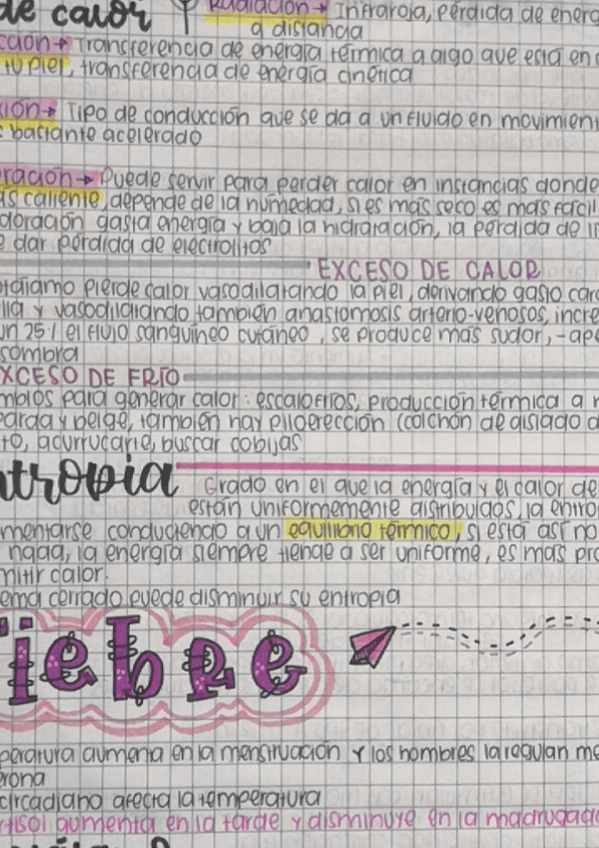 de calor Radiación→ Infraroja, pérdida de energ
a distancia
cción→ Transferencia de energía térmica a algo que está en c
tu piel, transferencia de energía cinética
ción→ Tipo de conducción que se da a un fluido en movimien
bastante acelerado
ración→ Puede servir para perder calor en instancias donde
ás caliente, depende de la humedad, si es más seco es más fácil
doración gasta energía y baja la hidratación, la pérdida de lí
e dar pérdida de electrolitos
EXCESO DE CALOR
otálamo pierde calor vasodilatando la piel, derivando gasto card
lla y vasodilatando también anastomosis arterio-venosos, incre
un 25% el flujo sanguíneo cutáneo, se produce más sudor, -ape
sombra
XCESO DE FRÍO
mbios para generar calor: escalofríos, producción térmica a n
parda y beige, también hay piloerección (colchón de aislado d
to, acurrucarte, buscar cobijas
ntropía Grado en el que la energía y el calor de
están uniformemente distribuidos, la entro
mentarse conduciendo a un equilibrio térmico, si está así no
nada, la energía siempre tiende a ser uniforme, es más pro
mitir calor.
ema cerrado puede disminuir su entropía
iebre
peratura aumenta en la menstruación y los hombres la regulan me
rona
circadiano afecta la temperatura
rtisol aumenta en la tarde y disminuye en la madrugada